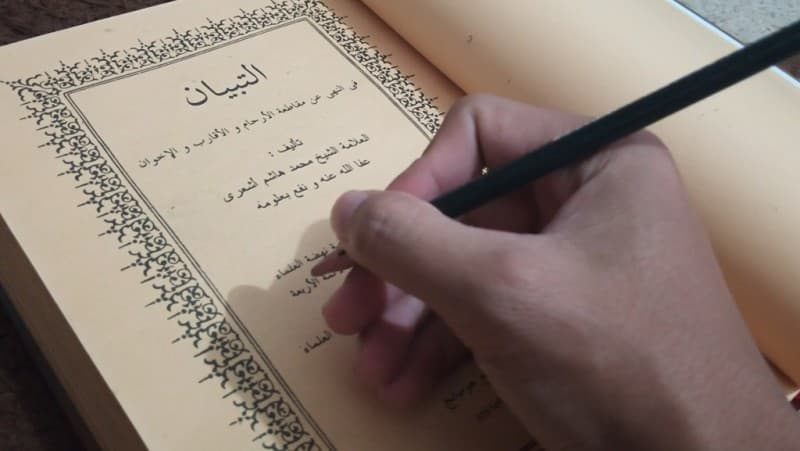 التبيان
فى النهى عن مقاطعة الأرحام و الأقارب و الإخوان
تأليف :
العلامة الشيخ محمد هاشم أشعرى
عفا الله عنه و نفع بعلومه
نهضة العلماء
الأربعة
العلماء